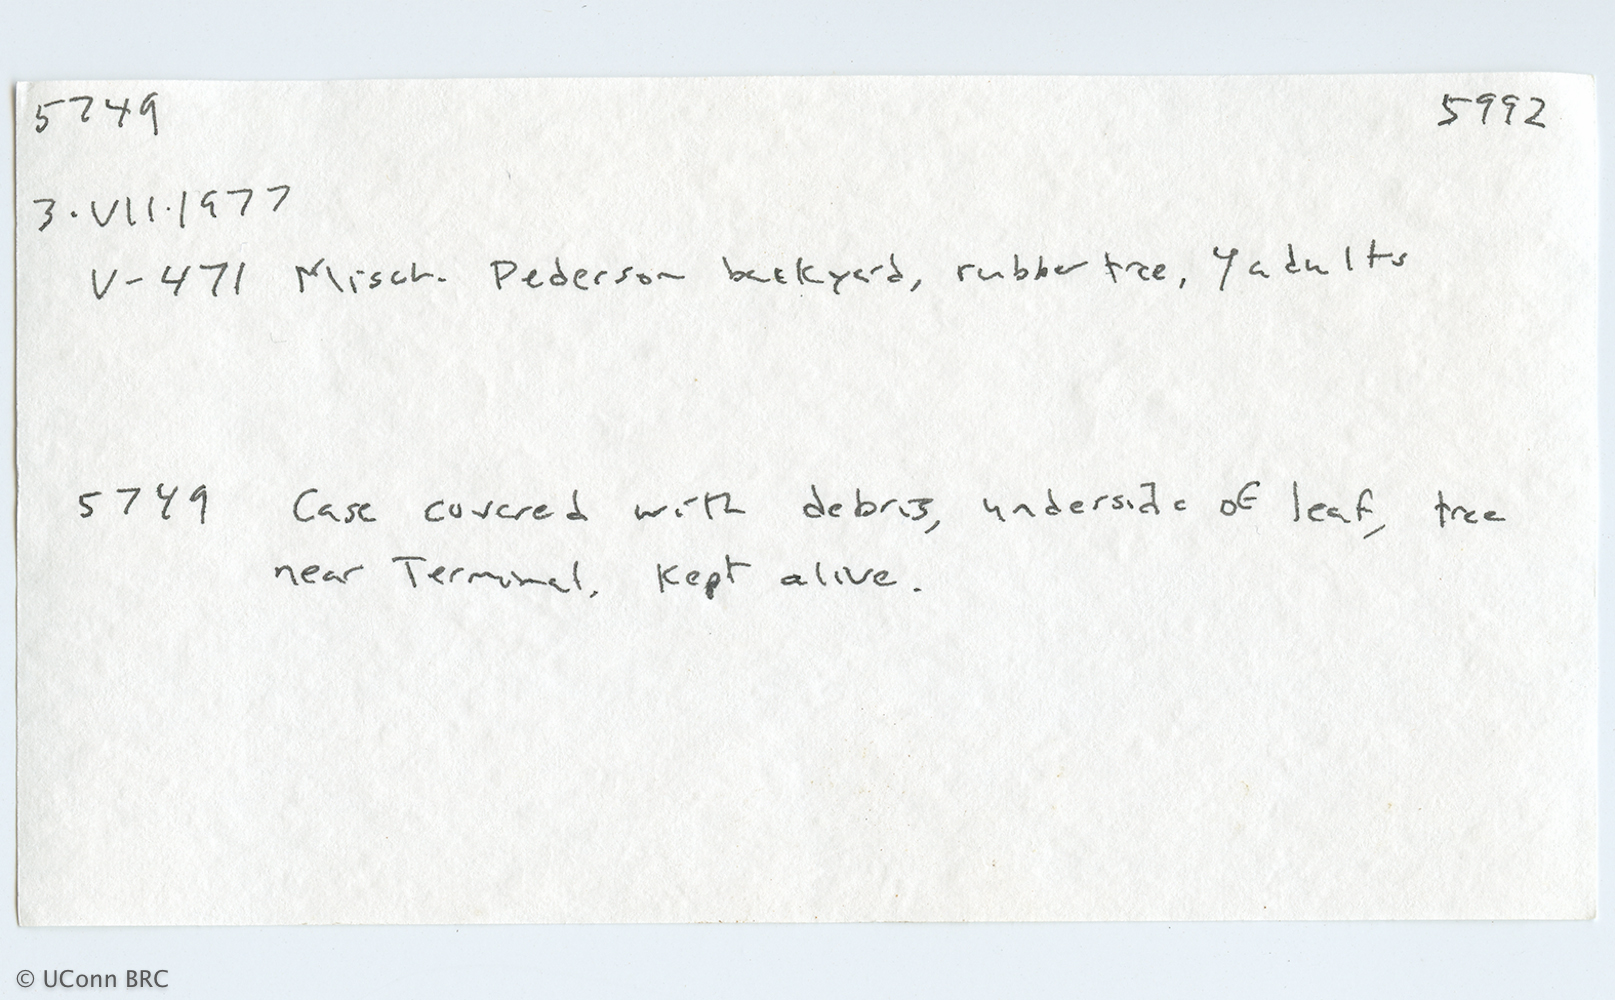 5749 5992
3·VII·1977
V-471 Misch. Pederson backyard, rubber tree, 4 adults
5749 Case covered with debris, underside of leaf, tree
near Terminal. Kept alive.
© UConn BRC